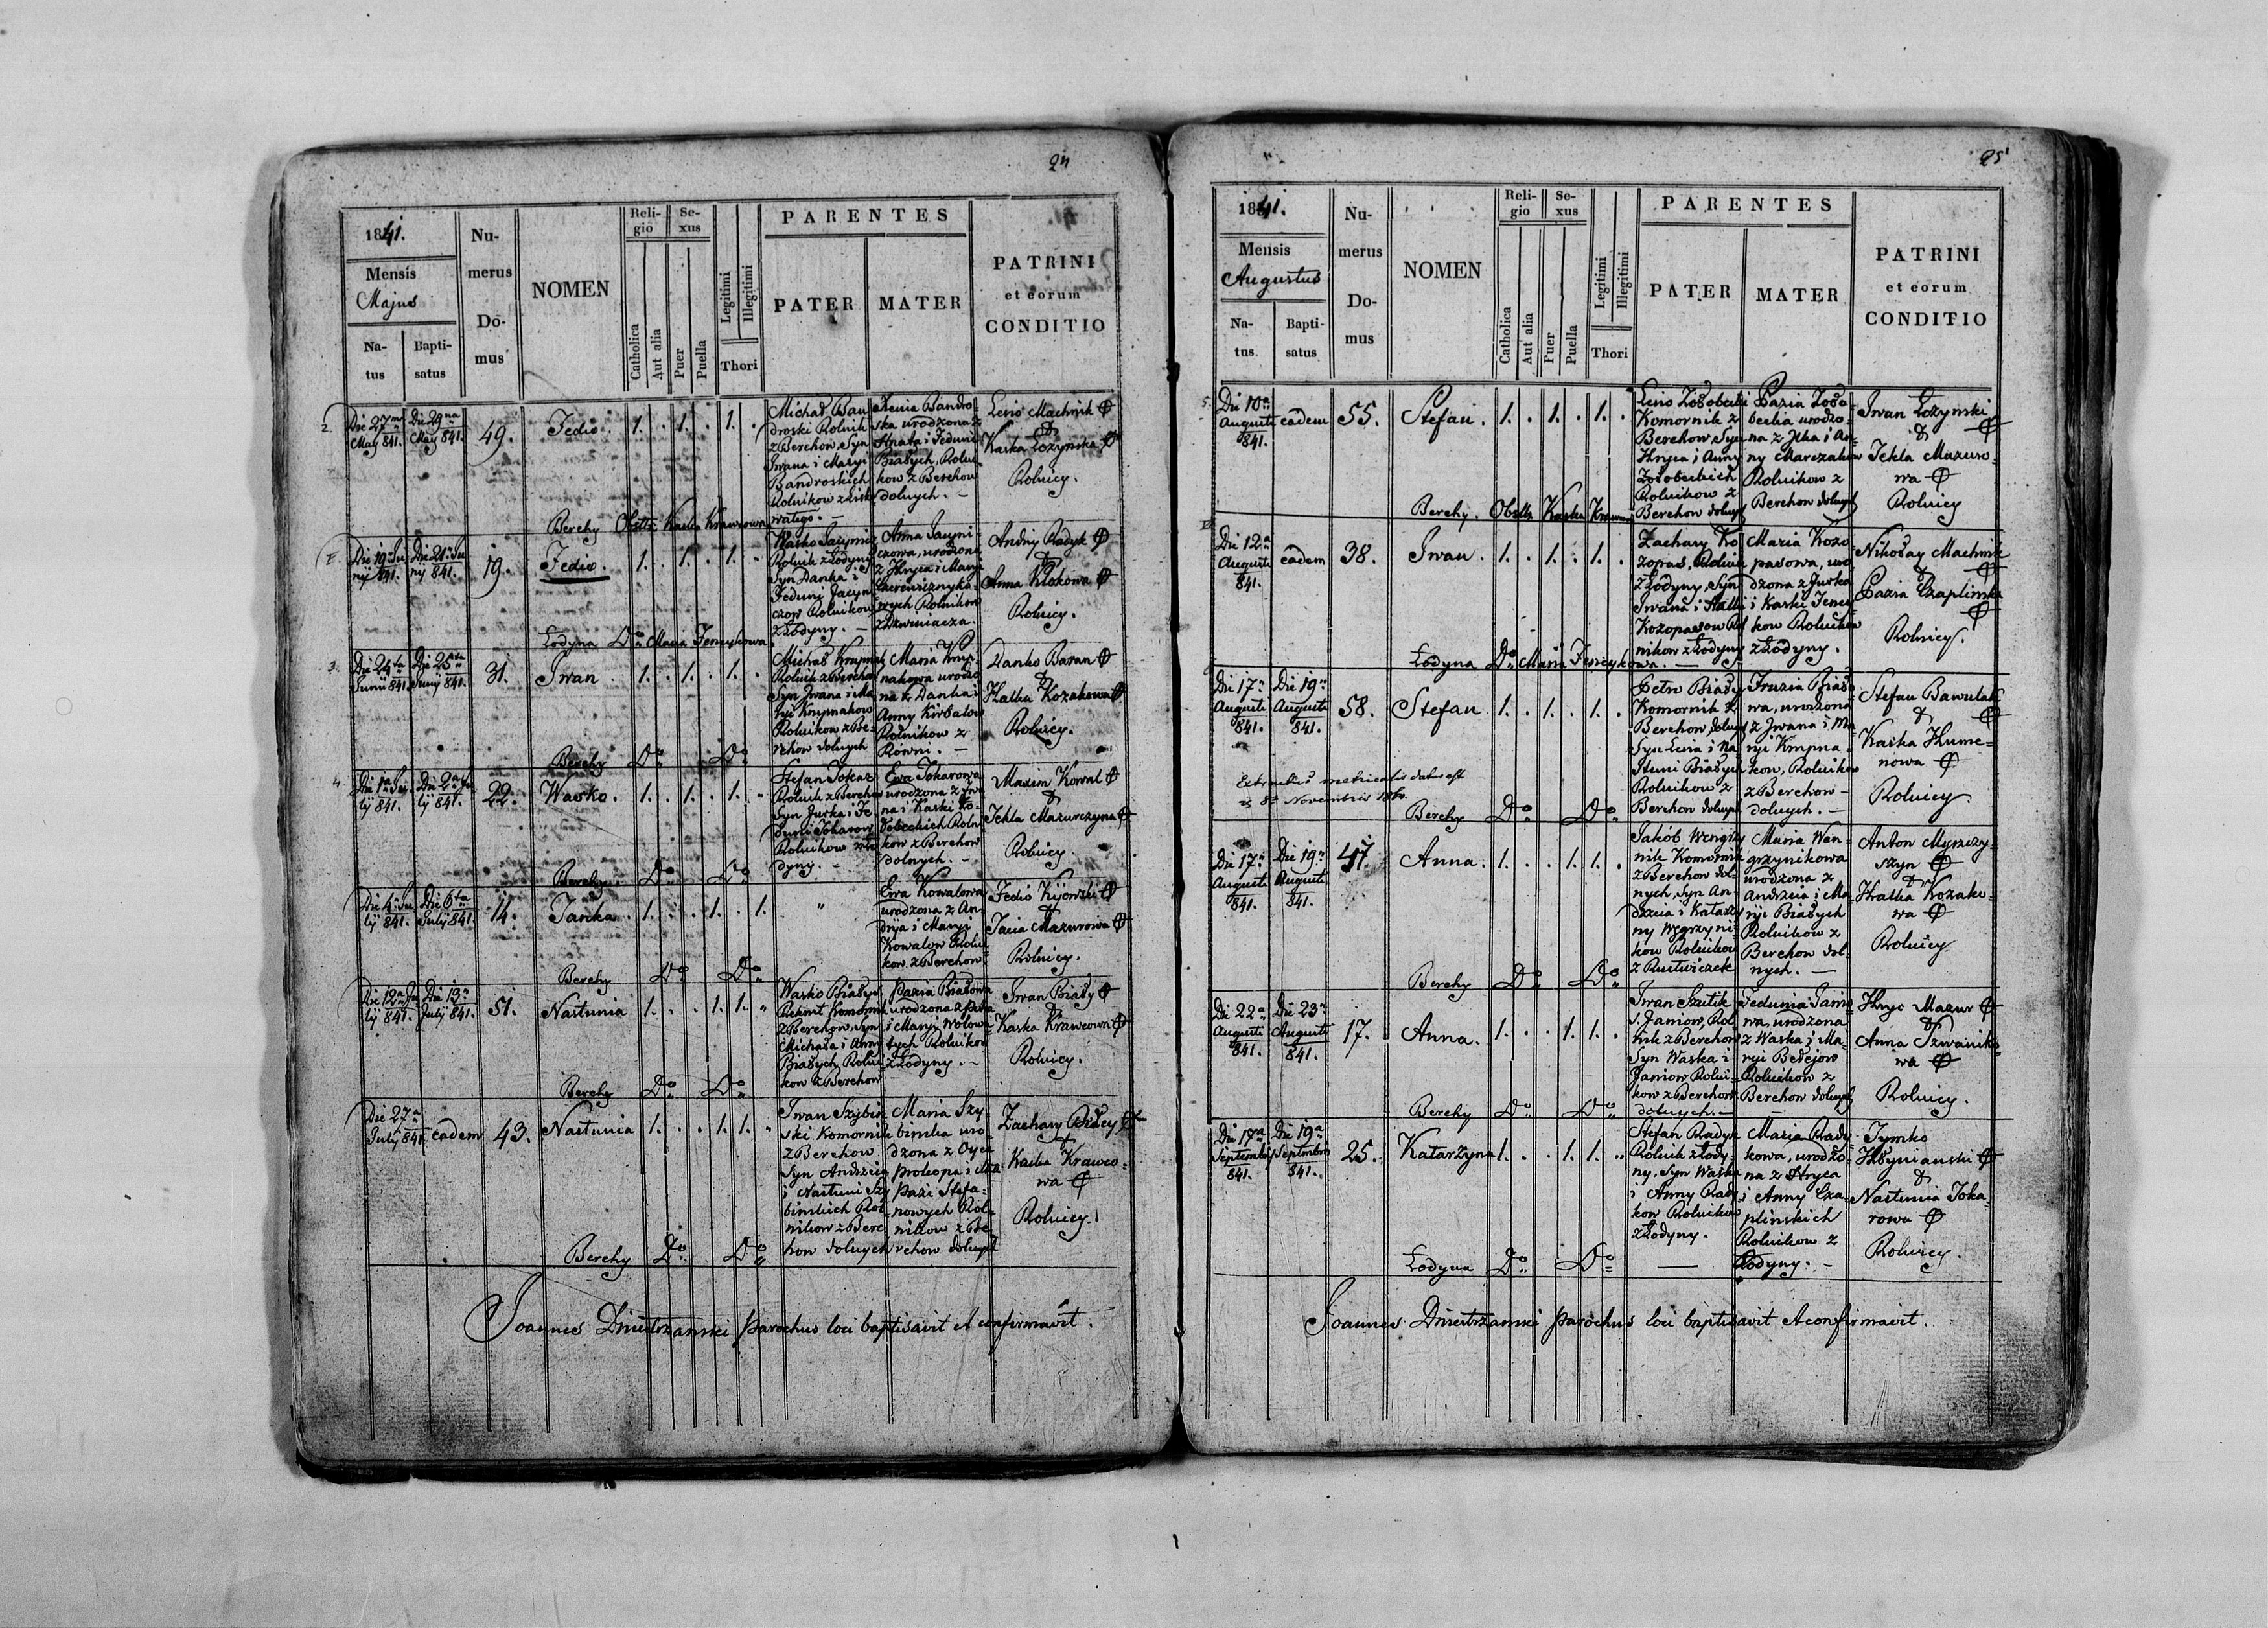 24
1841.
Mensis
Majus
Na-
tus
Bapti-
satus
Nu-
merus
Do-
mus
NOMEN
Reli-
gio
Catholica
Aut alia
Se-
xus
Puer
Puella
Legitimi
Illegitimi
Thori
PARENTES
PATER
MATER
PATRINI
et eorum
CONDITIO
2.
Die 27ma
May 841.
Die 29na
May 841.
49.
Fedio.
1. . 1. . 1. .
Michał Ban
droski Rolnik
z Berehow, Syn
Iwana i Maryi
Bandroskich
Rolnikow z Lisko
watego. –
Xenia Bandro-
ska urodzona z
Hnata i Feduni
Białych, Rolni
kow z Berehow
dolnych. –
Lesio Machnik
&
Kaska Łozynska
Rolnicy.
Berehy Obsttx Kaska Krawcowa
Die 19a Ju
nij 841.
Die 21a Ju
nij 841.
19.
Fedio.
1. . 1. . 1. .
Rolnik z Łodyny
Syn Danka i
Feduni Jacyni
czow Rolnikow
z Łodyny. –
Anna Jacyni-
czowa, urodzona
z Hryca i Maryi
wych Rolnikow
z Dzwiniacza.
Andrij Radyk
&
Anna Klokowa
Rolnicy.
Łodyna Do Maria Fencykowa
3.
Die 24ta
Junii 841.
Die 25ta
Junij 841.
31.
Iwan
1. . 1. . 1. .
Michał Krupnak
Rolnik z Berehow
Syn Iwana i Ma
ryi Krupnakow
Rolnikow z Be-
rehow dolnych
Maria Krup-
nakowa urodzo
na z Danka i
Anny Kirbalow
Rolnikow z
Rowni. –
Danko Baran
&
Hatka Kozakowa
Rolnicy.
Berehy Do Do
4
Die 1a Ju-
lij 841.
Die 2a Ju
lij 841.
22.
Wasko.
1. . 1. . 1. .
Stefan Tokar
Rolnik z Berehow
Syn Jurka i Fe
duni Tokarow
Rolnikow z Ło
dyny. –
Ewa Tokarowa
urodzona z Iwa
na i Kaski Zo-
łobeckich Rolni
kow z Berehow
dolnych. –
Maxim Kowal
&
Tekla Mazurczyna
Rolnicy.
Berehy Do Do
Die 4a Ju
lij 841.
Die 6ta
July 841.
14.
Jacka.
1. . . 1. . 1.
"
Ewa Kowalowa
urodzona z An-
drija i Maryi
Kowalow Rolni
kow z Berehow
Fedio Kijowski
&
Jacia Mazurowa
Rolnicy.
Berehy Do Do
Die 12a Ju
lij 841.
Die 13a
July 841.
51.
Nastunia
1. . . 1. 1. "
Wasko Biały
z Berehow Syn
Michała i Anny
Białych Rolni
kow z Berehow
Pazia Białowa
i Maryi Wołowa
tych Rolnikow
z Łodyny. –
Iwan Biały
&
Kaska Krawcowa
Rolnicy.
Berehy Do Do
Die 27a
July 841.
eadem
43.
Nastunia
1. . . 1. 1. "
Iwan Szybin
ski Komornik
z Berehow
Syn Andrzeja
i Nastuni Szy
binskich Rol-
nikow z Bere
how dolnych
Maria Szy-
binska uro-
dzona z Oyca
Prokopa i Matki
Pazi Stefa-
nowych Rol-
nikow z Be
rehow dolnych
Zachary Biłey
&
Kaska Krawco-
wa
Rolnicy.
Berehy Do Do
Joannes Dniestrzanski parochus loci baptisavit et confirmavit.
25
1841.
Mensis
Augustus
Na-
tus.
Bapti-
satus
Nu-
merus
Do-
mus
NOMEN
Reli-
gio
Catholica
Aut alia
Se-
xus
Puer
Puella
Legitimi
Illegitimi
Thori
PARENTES
PATER
MATER
PATRINI
et eorum
CONDITIO
5.
Die 10a
Augusti
841.
eadem
55.
Stefan.
1. . 1. . 1. .
Lesio Zołobecki
Komornik z
Berehow, Syn
Hryca i Anny
Zołobeckich
Rolnikow z
Berehow dolnych
Pazia Zoło-
becka urodzo-
na z Ilka i An-
ny Marczakow
Rolnikow z
Berehow dolnych
Iwan Łozynski
&
Tekla Mazuro-
wa
Rolnicy
Berehy. Obsttx Kaska Krawcow
Die 12a
Augusti
841.
eadem
38.
Iwan
1. . 1. . 1. .
Zachary Ko
zopas, Rolnik
z Łodyny, Syn
Iwana i Hatki
Kozopasow Rol
nikow z Łodyny
Maria Kozo
pasowa, uro
dzona z Jurka
i Kaski Fency-
kow Rolnikow
z Łodyny.
Nikołay Machnik
&
Pazia Czaplinska
Rolnicy.
Łodyna Do Maria Fencykowa. –
Die 17a
Augusti
841.
Die 19a
Augusti
841.
58.
Stefan
1. . 1. . 1. .
Petro Biały
Komornik z
Berehow dolnych
Syn Lesia i Na
stuni Białych
Rolnikow z
Berehow dolnych
Fruzia Biało
wa, urodzona
z Iwana i Ma
ryi Krupna-
kow, Rolnikow
z Berehow –
dolnych. –
Stefan Bawulak
&
Kaska Hume-
nowa
Rolnicy.
Extractus metricalis datus est
8a Novembris 186
Berehy Do Do
Die 17a
Augusti
841.
Die 19a
Augusti
841.
47.
Anna.
1. . . 1. 1. .
Jakób Wengrzy
nik Komornik
z Berehow dol
nych, Syn An-
drzeia i Katarzy
ny Węgrzyni-
kow Rolnikow
z Rustwiczek
Maria Wen-
grzynikowa
urodzona z
Andrzeia i Ma-
ryi Białych
Rolnikow z
Berehow dol-
nych. –
Anton Myszczy-
szyn
&
Hatka Kozako-
wa
Rolnicy
Berehy Do Do
Die 22a
Augusti
841.
Die 23a
Augusti
841.
17.
Anna.
1. . . 1. 1. .
Janiow, Rol
nik z Berehow
Syn Waska i
Janiow Rolni-
kow z Berehow
dolnych. –
Fedunia Janio
wa, urodzona
z Waska i Ma-
ryi Bełejow
Rolnikow z
Berehow dolnych
Hryc Mazur
&
Anna Szwaniko-
wa
Rolnicy.
Berehy Do Do
Die 17a
Septembris
841.
Die 19a
Septembris
841.
25.
Katarzyna
1. . . 1. 1. "
Stefan Radyk
Rolnik z Łody-
ny, Syn Waska
i Anny Rady
kow Rolnikow
z Łodyny.
Maria Rady-
kowa, urodzo-
na z Hryca
i Anny Cza-
plinskich
Rolnikow z
Łodyny. –
Tymko
Hłynianski
&
Nastunia Toka-
rowa
Rolnicy.
Łodyna Do Do
Joannes Dniestrzanski parochus loci baptisavit et confirmavit.